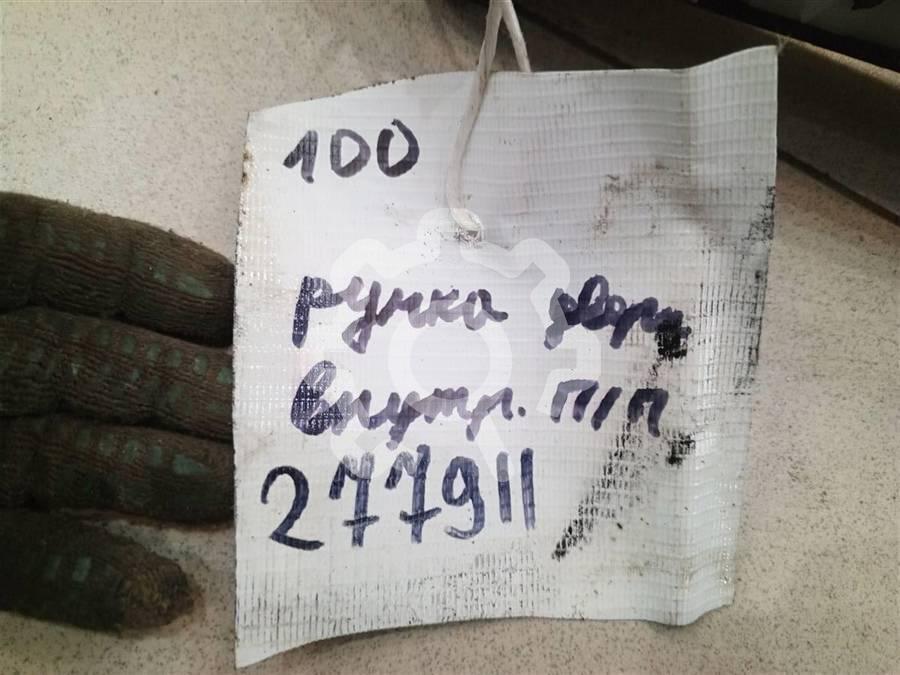 100
ручка двери
внутр. П/П
277911